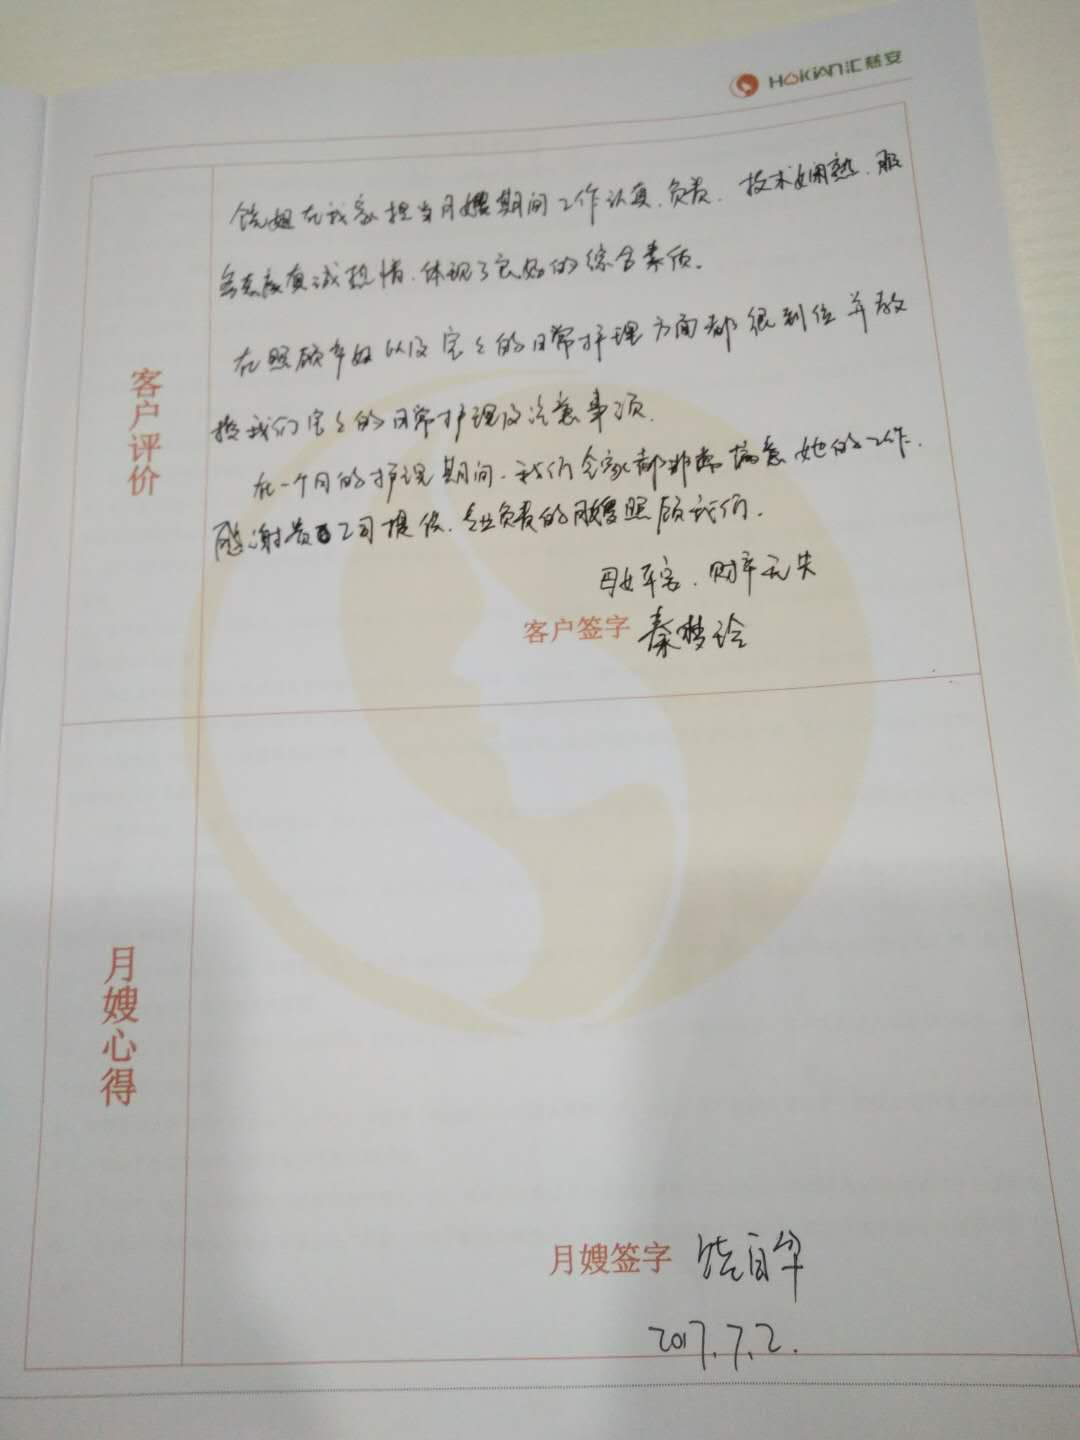 HOKiAN汇慈安
饶姐在我家担当月嫂期间工作认真、负责、技术娴熟、服
务态度真诚热情、体现了良好的综合素质。
在照顾产妇以及宝宝的日常护理方面都很到位并教
授我们宝宝的日常护理及注意事项.
在一个月的护理期间、我们全家都非常满意她的工作.
感谢贵公司提供、专业负责的月嫂照顾我们.
母女平客、财产无失
客户评价
客户签字 秦梦玲
月嫂心得
月嫂签字 饶自华
2017.7.2.